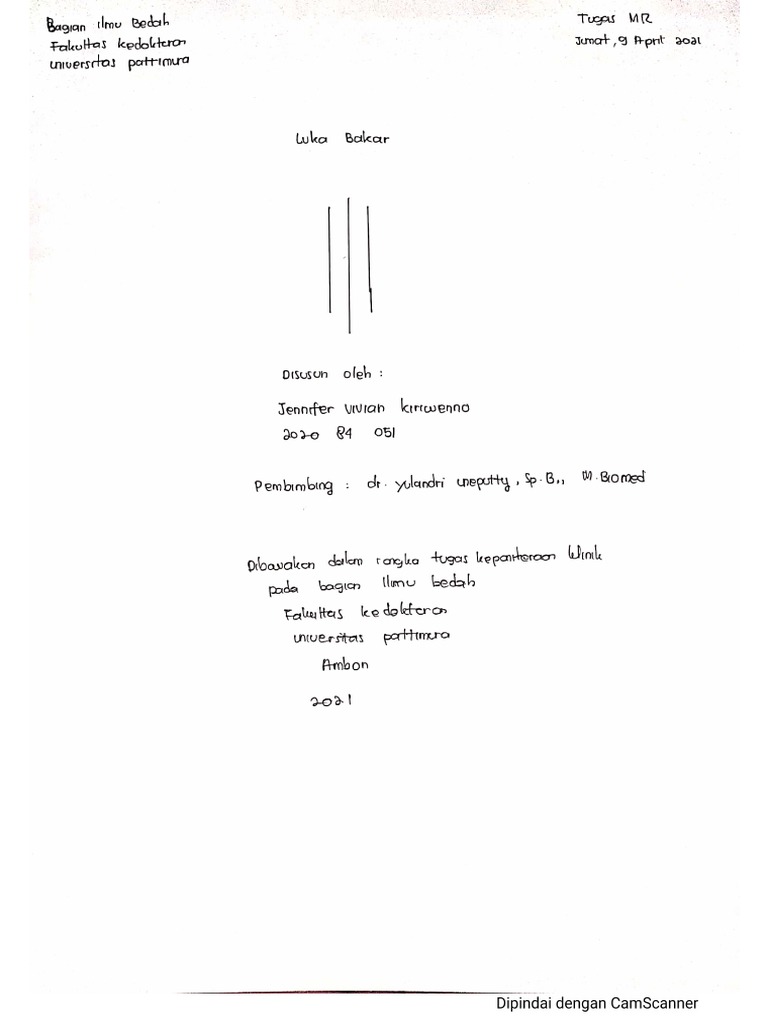 Bagian Ilmu Bedah
Fakultas Kedokteran
Universitas pattimura
Tugas MR
Jumat, 9 April 2021
Luka Bakar
Disusun oleh :
Jennifer Vivian Kiriwenno
2020 84 051
Pembimbing : dr. Yulandri Uneputty, Sp.B., M.Biomed
Dibawakan dalam rangka tugas kepaniteraan klinik
pada bagian Ilmu bedah
Fakultas kedokteran
Universitas pattimura
Ambon
2021
Dipindai dengan CamScanner